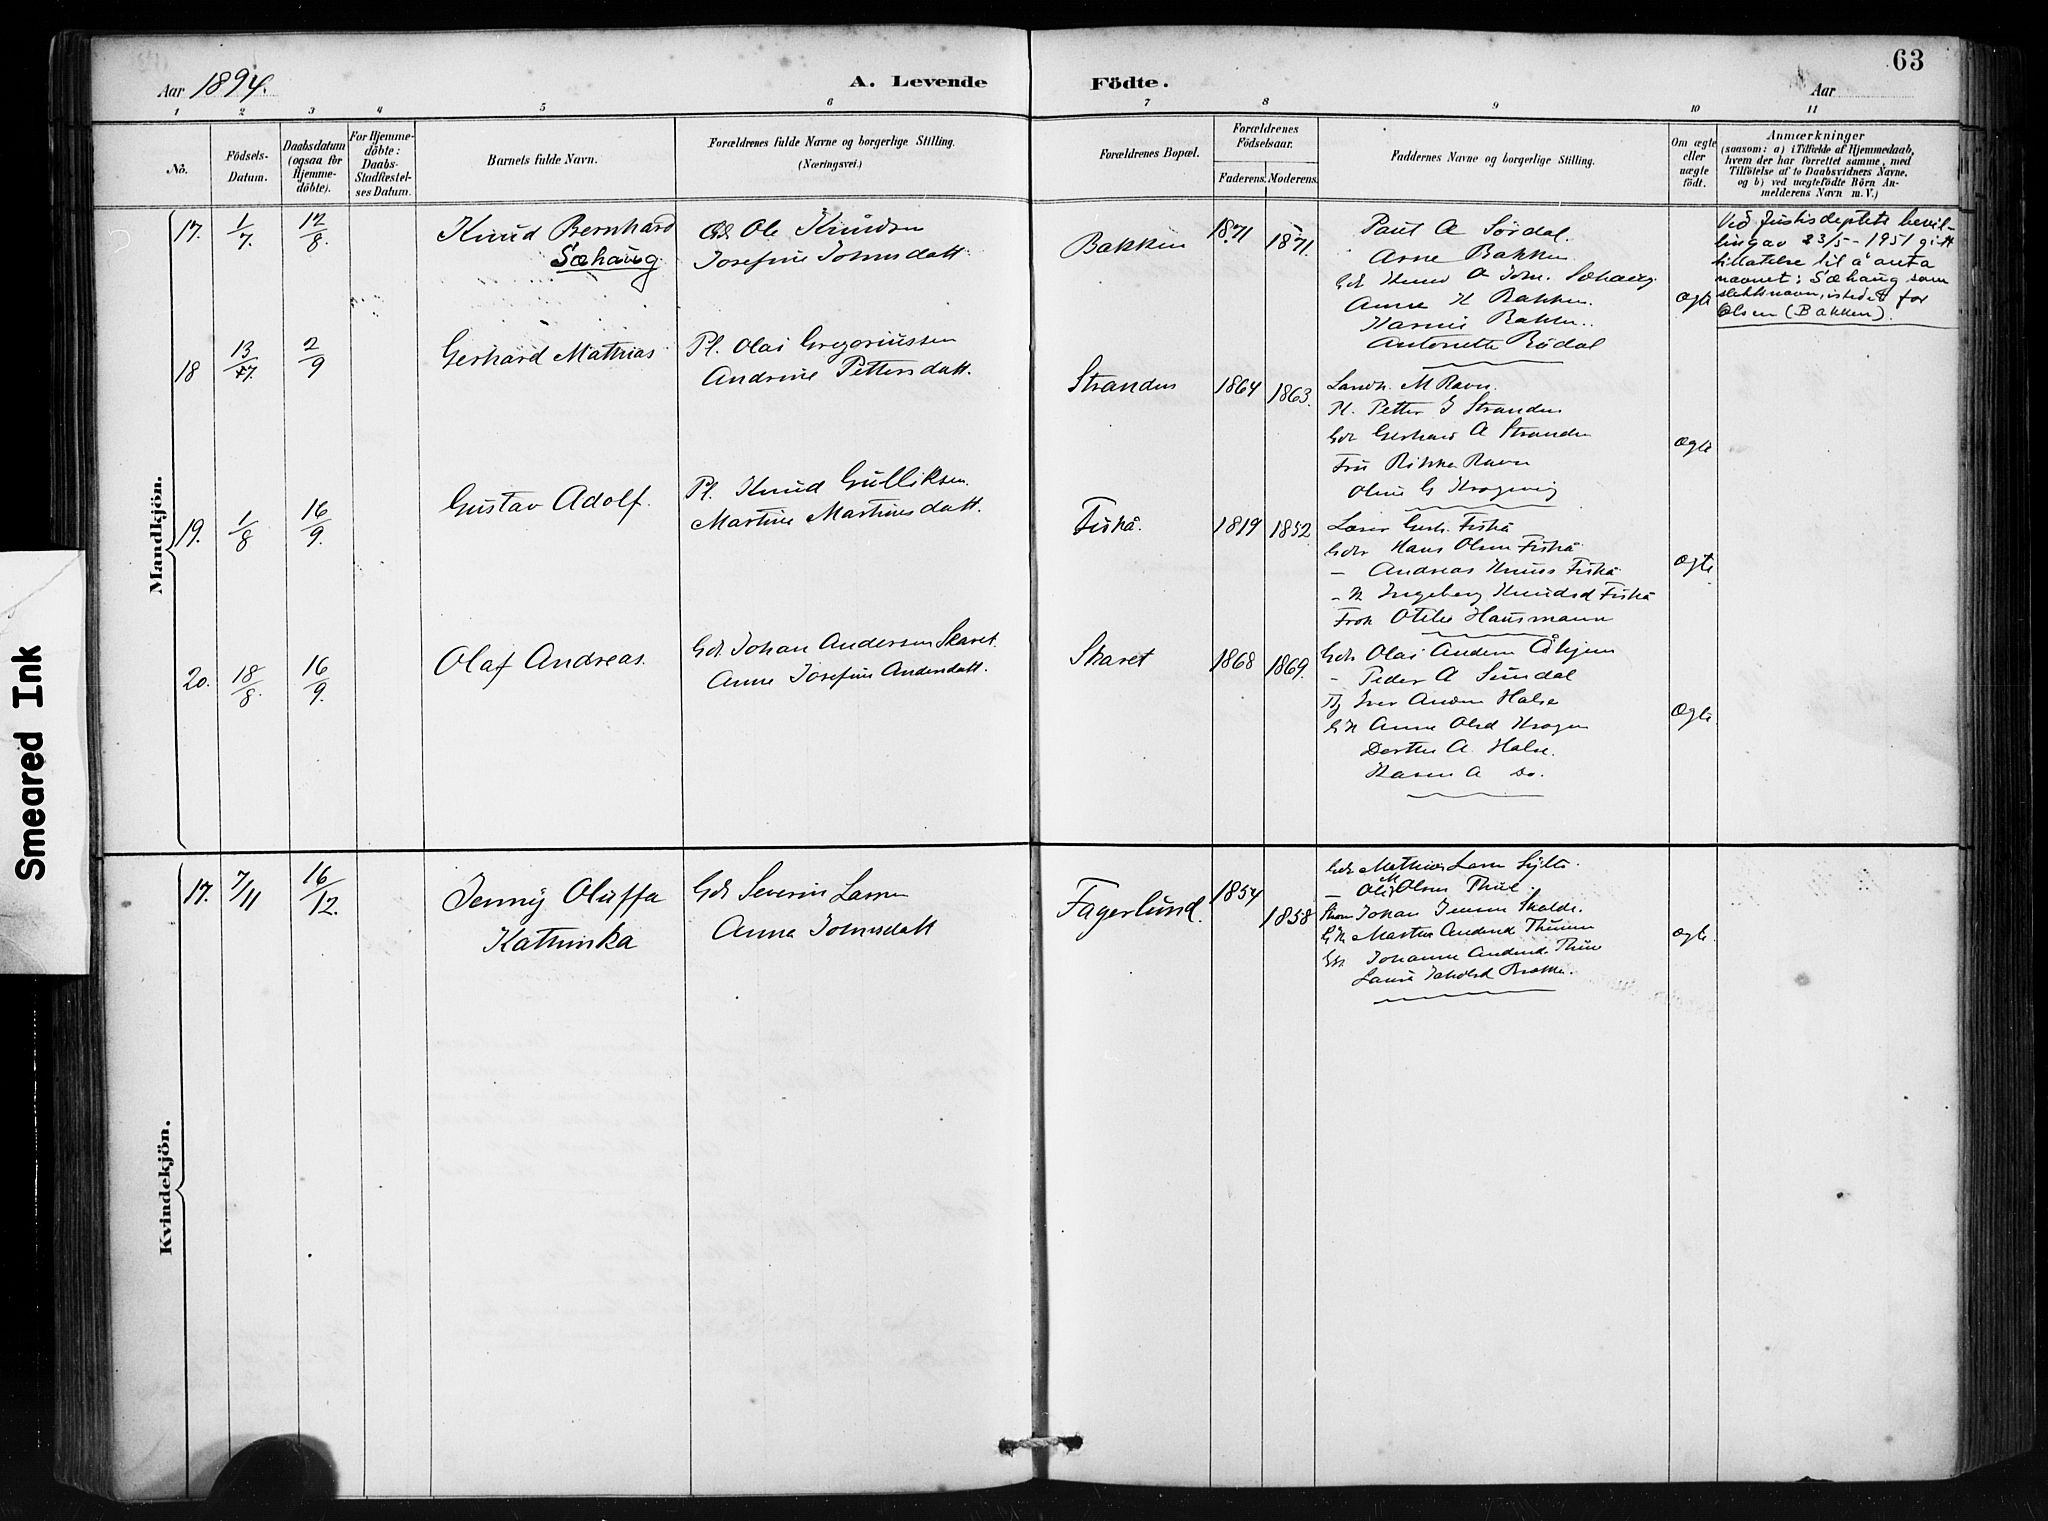 63
Aar 1894.
A. Levende Födte.
Aar
1 2 3 4 5 6 7 8 9 10 11
No.
Födsels-
Datum.
Daabsdatum
(ogsaa for
Hjemme-
döbte).
For Hjemme-
döbte:
Daabs-
Stadfæstel-
ses Datum.
Barnets fulde Navn.
Forældrenes fulde Navne og borgerlige Stilling.
(Næringsvei.)
Forældrenes Bopæl.
Forældrenes
Födselsaar.
Faderens. Moderens.
Faddernes Navne og borgerlige Stilling.
Om ægte
eller
uægte
födt.
Anmærkninger
(saasom: a) i Tilfælde af Hjemmedaab,
hvem der har forrettet samme, med
Tilföielse af to Daabsvidners Navne,
og b) ved uægtefödte Börn An-
melderens Navn m. V.)
Mandkjön.
17. 1/7. 12/8.
Knud Bernhard
Sæhaug.
Ole Knudsen
Josefine Johnsdatt.
Bakken
1871 1871.
Paul A Sørdal.
Arne Bakken
Anne K Bakken.
Karnis Bakken.
Antonette Rødal
Ægte
Ved Justisdeptets bevil-
ling av 23/5-1951 gitt
tillatelse til å anta
navnet: Sæhaug som
slektsnavn, istedet for
Olsen (Bakken).
18 13/7. 2/9
Gerhard Mathias
Pl. Olai Gregoriussen
Andrine Pettersdatt.
Stranden
1864 1863.
Landh. M Ravn.
Pl. Petter J Stranden
Gdr Gerhard A Stranden
Fru Rikke Ravn
Oline G Krogvig
Ægte
19. 1/8 16/9.
Gustav Adolf.
Pl. Knud Gulliksen.
Martine Martinsdatt.
Fiskå.
1819 1852
Laser Fiskå
Gdr Hans Olsen Fiskå
- Andreas Knuds Fiskå
Ingeberg Knudsd Fiskå
Frøk Otilie Hausmann
Ægte
20. 18/8. 16/9.
Olaf Andreas.
Gdr. Johan Andersen Skaret.
Anne Josefine Andersdatt.
Skaret
1868 1869.
Gdr Olai Anders Åhjem
- Peder A Sundal
Iver Anders Halse
Anne Olsd Krogen
Dorthe A. Halse.
Karen A do.
Ægte
Kvindekjön.
17. 7/11 16/12.
Jenny Oluffa
Katrinka
Gdr Severin Larsen
Anna Johnsdatt
Fagerlund.
1854 1858
Gdr Mathias Larsen Sylte.
- Ole M Olsen Thue.
Johan Jensen Skalde.
Marthe Andersd Thuen
Johanne Andersd. Thue
Laura Jakobsd Brække.
Ægte.
Smeared Ink